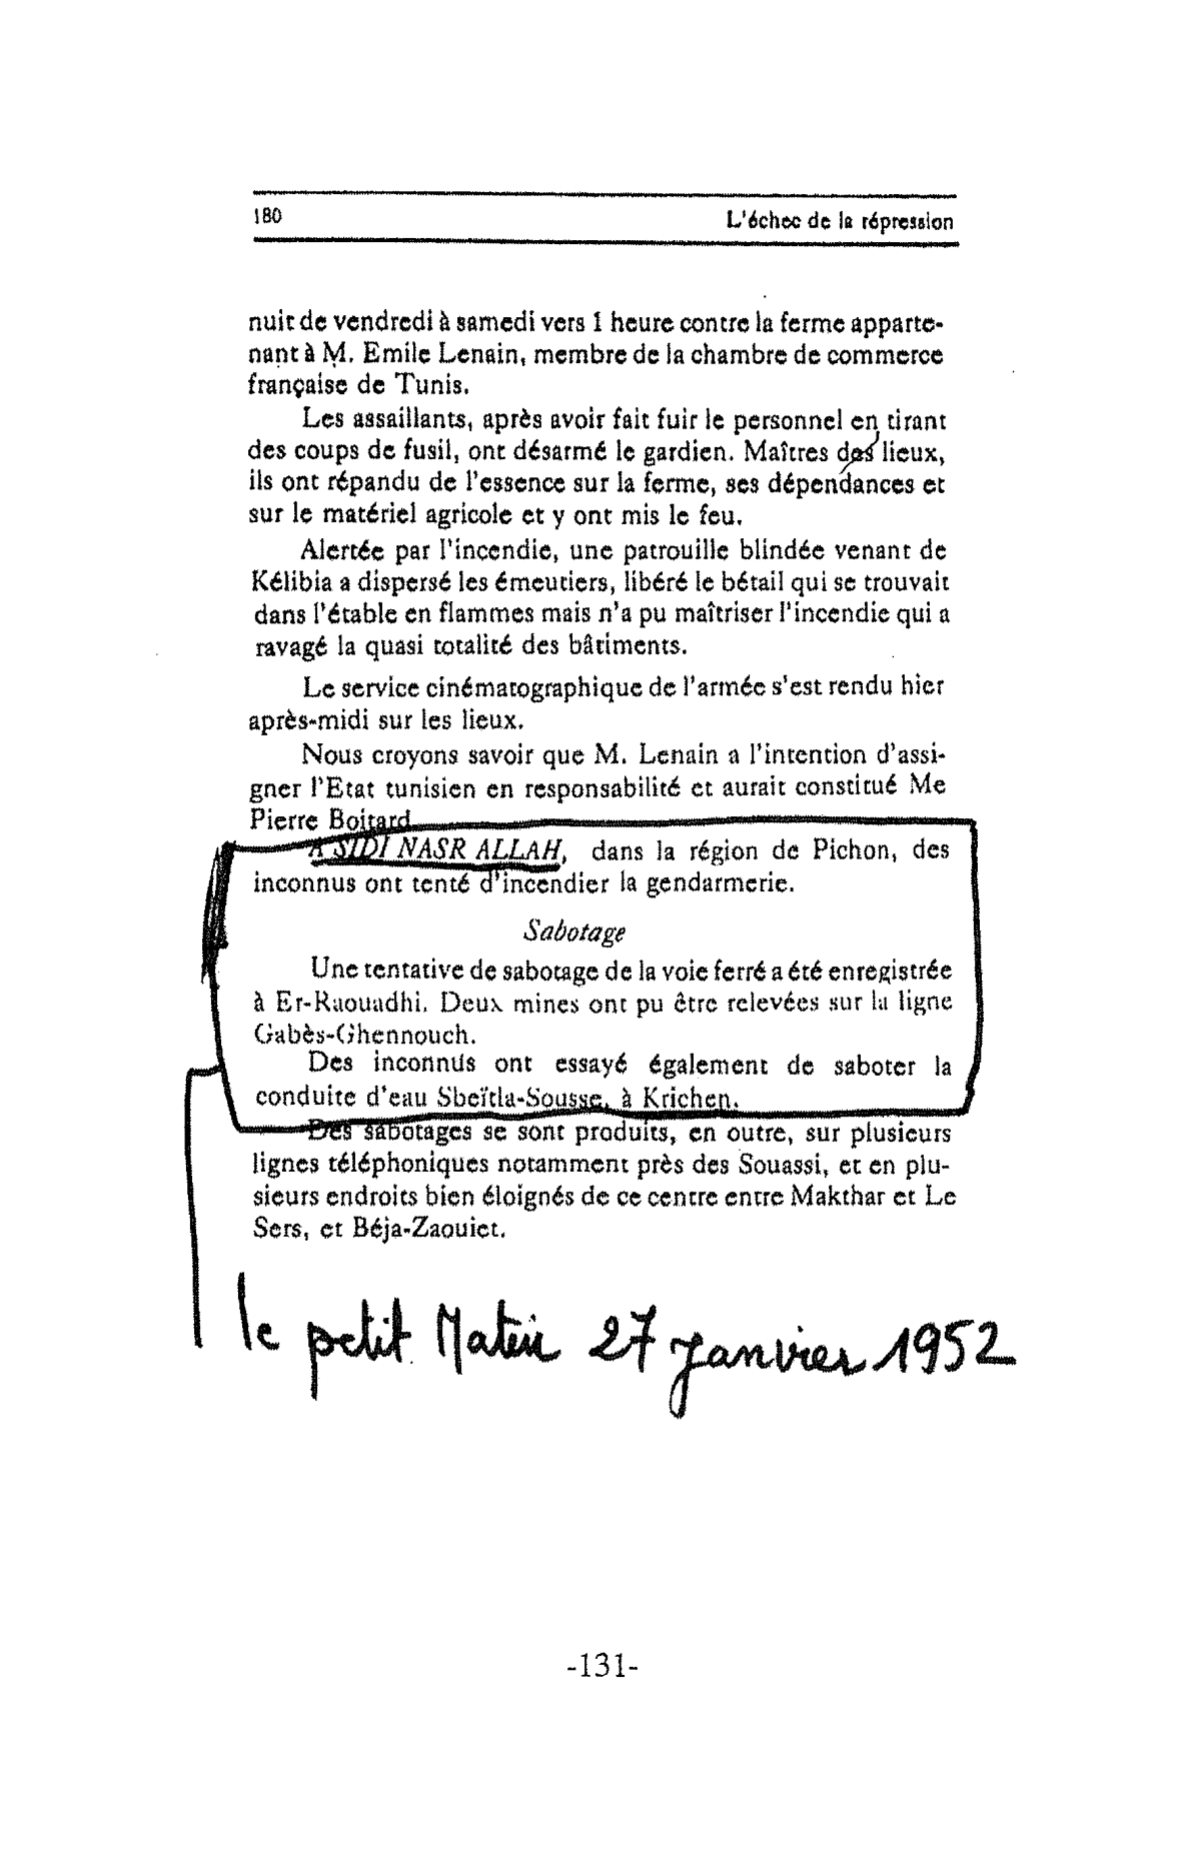 180
L'échec de la répression
nuit de vendredi à samedi vers 1 heure contre la ferme apparte-
nant à M. Emile Lenain, membre de la chambre de commerce
française de Tunis.
Les assaillants, après avoir fait fuir le personnel en tirant
des coups de fusil, ont désarmé le gardien. Maîtres des lieux,
ils ont répandu de l'essence sur la ferme, ses dépendances et
sur le matériel agricole et y ont mis le feu.
Alertée par l'incendie, une patrouille blindée venant de
Kélibia a dispersé les émeutiers, libéré le bétail qui se trouvait
dans l'étable en flammes mais n'a pu maîtriser l'incendie qui a
ravagé la quasi totalité des bâtiments.
Le service cinématographique de l'armée s'est rendu hier
après-midi sur les lieux.
Nous croyons savoir que M. Lenain a l'intention d'assi-
gner l'Etat tunisien en responsabilité et aurait constitué Me
Pierre Boitard
A SIDI NASR ALLAH, dans la région de Pichon, des
inconnus ont tenté d'incendier la gendarmerie.
Sabotage
Une tentative de sabotage de la voie ferré a été enregistrée
à Er-Raouadhi. Deux mines ont pu être relevées sur la ligne
Gabès-Ghennouch.
Des inconnus ont essayé également de saboter la
conduite d'eau Sbeïtla-Sousse, à Krichen.
Des sabotages se sont produits, en outre, sur plusieurs
lignes téléphoniques notamment près des Souassi, et en plu-
sieurs endroits bien éloignés de ce centre entre Makthar et Le
Sers, et Béja-Zaouiet.
le petit Matin 27 Janvier 1952
-131-